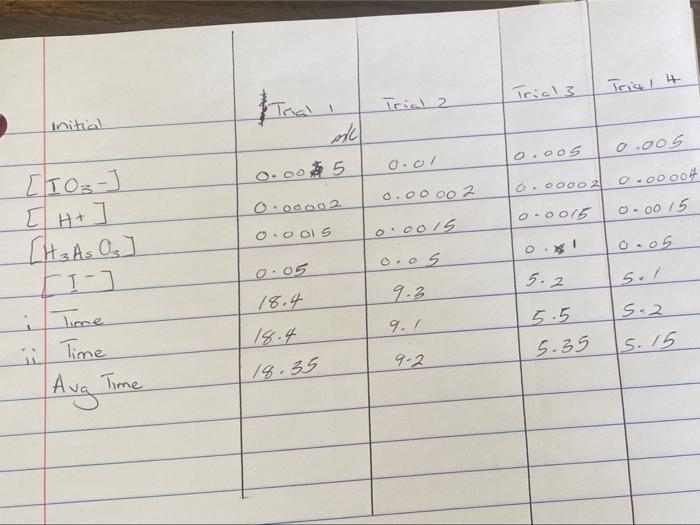 Initial Trial 1 Trial 2 Trial 3 Trial 4
m/L
[IO3-] 0.005 0.01 0.005 0.005
[H+] 0.00002 0.00002 0.00002 0.00004
[H3AsO3] 0.0015 0.0015 0.0015 0.0015
[I-] 0.05 0.05 0.1 0.05
i Time 18.4 9.3 5.2 5.1
ii Time 18.4 9.1 5.5 5.2
Avg Time 18.35 9.2 5.35 5.15